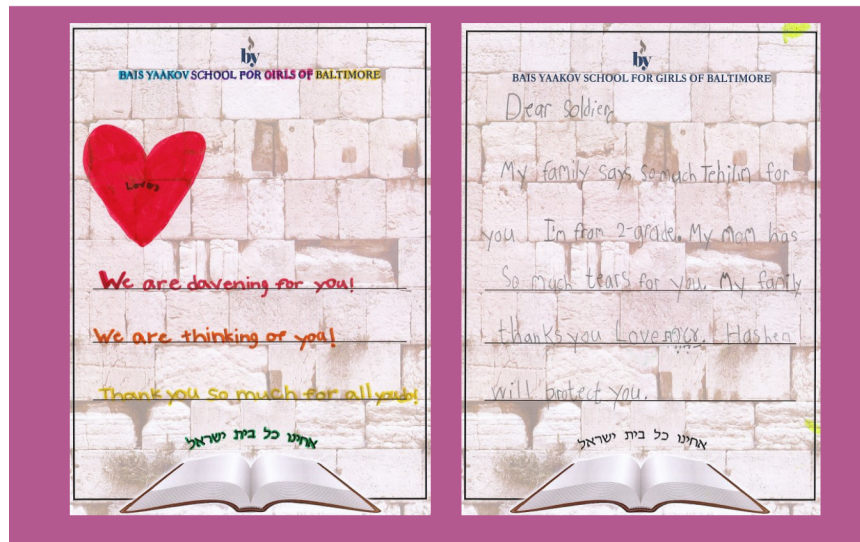 by
BAIS YAAKOV SCHOOL FOR GIRLS OF BALTIMORE
We are davening for you!
We are thinking of you!
Thank you so much for all you do!
אחינו כל בית ישראל
by
BAIS YAAKOV SCHOOL FOR GIRLS OF BALTIMORE
Dear Soldier,
My family says so much Tehilim for
you I'm from 2-grade. My mom has
So much tears for you. My family
thanks you Love Hashem
will protect you.
אחינו כל בית ישראל